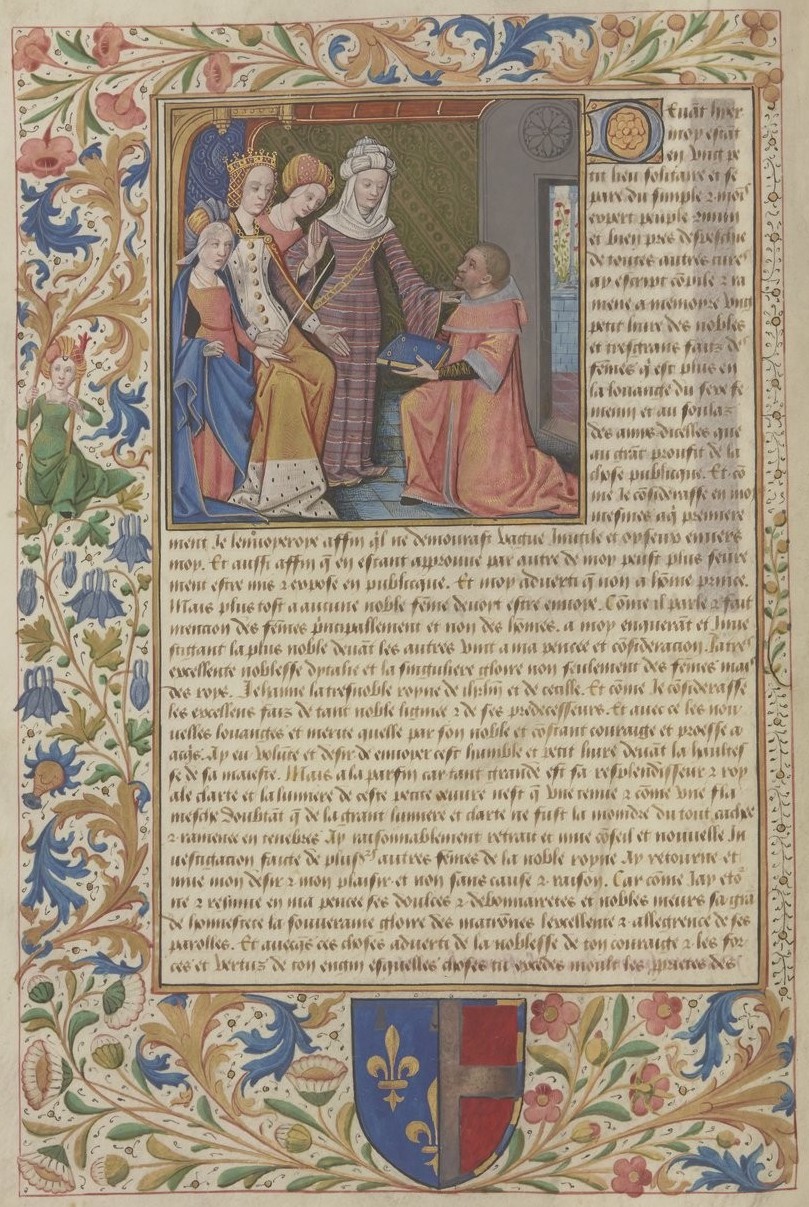 Deuāt hyer
moy estāt
en vng pe
tit lieu solitaire et se
pare du simple 2 mois
expert peuple
et bien pres despesche
de toutes autres cures
ay escript cōpile 2 ra
mene a memoire vng
petit liure des nobles
et tresgrans faiz de
fēmes q̄ est plus en
la louange du sexe fe
menin et au soulaz
des amis dicelles que
au grāt prouffit de la
chose publicque. Et cō
me Je cōsiderasse en moy
mesmes a q̄ premiere
ment Je lenuoyeroye affin q̄l ne demourast vague Inutile et oyseux enuers
moy. Et aussi affin q̄ en estant approuue par autre de moy peust plus seure
ment estre mis 2 expose en publicque. Et moy aduerti q̄ non a hōme prince.
Mais plus tost a aucune noble fēme deuoit estre enuoye. Cōme il parle 2 fait
mention des fēmes p̄ncipallement et non des hōmes. a moy enquerāt et Inue
stigant la plus noble deuāt les autres vint a ma pencee et cōsideracion. La tres
excellente noblesse dytalie et la singuliere gloire non seulement des fēmes mais
des roys. Jehanne la tresnoble royne de ihrlm̄ et de cecille. Et cōme Je cōsiderasse
les excellens faiz de tant noble lignee 2 de ses predecesseurs. Et auec ce les nou
uelles louanges et merite quelle par son noble et cōstant couraige et proesse a
acq̄s. Ay eu volūte et desir de enuoyer cest humble et petit liure deuāt la haultes
se de sa maieste. Mais a la parfin car tant grande est sa resplendisseur 2 roy
ale clarte et la lumiere de ceste petite oeuure nest q̄ vne tenue 2 cōme vne fla
mesche doubtāt q̄ de la grant lumiere et clarte ne fust la moindre du tout cachee
2 ramenee en tenebres Ay raisonnablement retrait et mue cōseil et nouuelle In
uestigacion faicte de plus͛s autres fēmes de la noble royne Ay retourne et
mue mon desir 2 mon plaisir et non sans cause 2 raison. Car cōme Jay
ne 2 resume en ma pencee ses doulces 2 debonnairetes et nobles meurs sa grā
de honnestete la souueraine gloire des matrōnes lexcellente 2 allegrence de ses
parolles. Et auecq̄s ces choses aduerti de la noblesse de ton couraige 2 les for
ces et vertuz de ton engin esquelles choses tu excedes moult les p̄prietes des